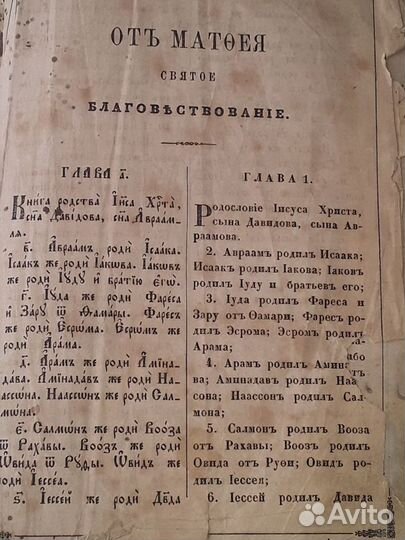 ОТЪ МАТѲЕЯ
СВЯТОЕ
БЛАГОВѢСТВОВАНІЕ.
ГЛАВА а҃.
Кни́га родства̀ І҆и҃са Хрⷭ҇та̀,
сн҃а Дави́дова, сн҃а А҆враа́м-
ля.
в҃. А҆враа́мъ родѝ І҆саа́ка.
І҆саа́къ же родѝ І҆а́кѡва. І҆а́кѡвъ
же родѝ І҆у́дꙋ и҆ бра́тїю є҆гѡ̀.
г҃. І҆у́да же родѝ Фаре́са
и҆ За́рꙋ ѿ Ѳама́ры. Фаре́съ
же родѝ Є҆срѡ́ма. Є҆срѡ́мъ же
родѝ А҆ра́ма.
д҃. А҆ра́мъ же родѝ А҆мїна-
да́ва. А҆мїнада́въ же родѝ На-
ассѡ́на. Наассѡ́нъ же родѝ Сал-
мѡ́на.
є҃. Салмѡ́нъ же родѝ Воо́за
ѿ Раха́вы. Воо́зъ же родѝ
Ѡ҆ви́да ѿ Рꙋ́ѳы. Ѡ҆ви́дъ же ро-
дѝ І҆ессе́а.
ѕ҃. І҆ессе́й же родѝ Дв҃да
ГЛАВА 1.
Родословіе Іисуса Христа,
сына Давидова, сына Ав-
раамова.
2. Авраам родил Исаака;
Исаак родил Іакова; Іаков
родил Іуду и братьев его;
3. Іуда родил Фареса и
Зару от Ѳамари; Фарес ро-
дил Эсрома; Эсром родил
Арама;
або
4. Арам родил Аминa-
ва; Аминадав родил Наа-
сона; Наассон родил Сал-
мона;
5. Салмон родил Вооза
от Рахавы; Вооз родил
Овида от Руѳи; Овид ро-
дил Іессея;
6. Іессей родил Давида
Avito